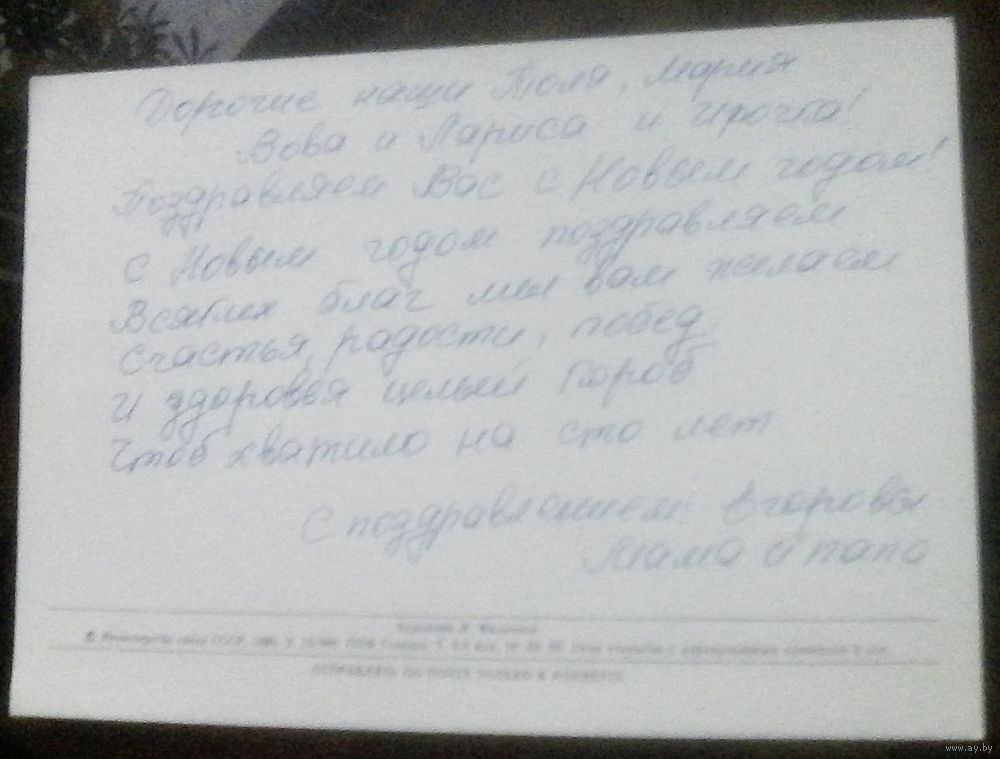 Дорогие наши Толя, Мария
Вова и Лариса и Ирочка!
Поздравляем Вас с Новым годом!
С Новым годом поздравляем
Всяких благ мы вам желаем
Счастья, радости, побед
И здоровья целый короб
Чтоб хватило на сто лет
С поздравлением Егоровы
Мама и папа
Художник
Министерство связи СССР
ОТПРАВЛЯТЬ ПО ПОЧТЕ ТОЛЬКО В КОНВЕРТЕ
www.ay.by